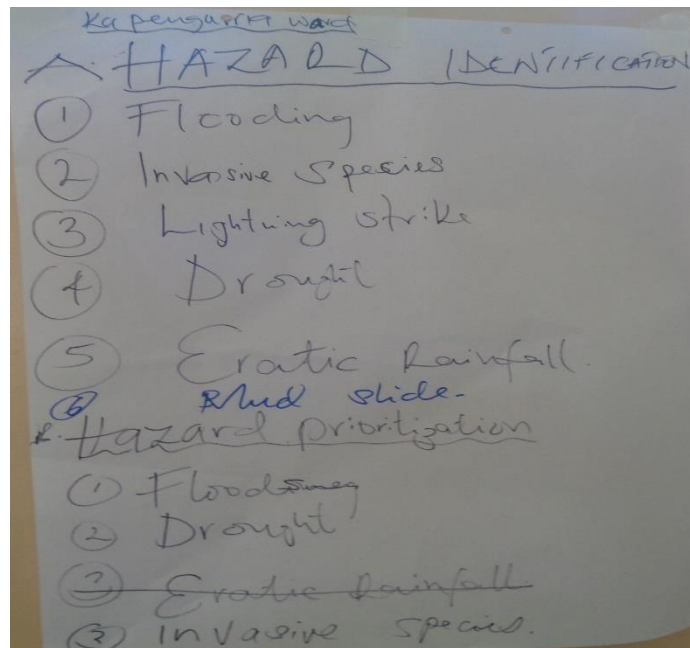 Kapenguria ward
A. HAZARD IDENTIIFICATION
1 Flooding
2 Invasive Species
3 Lightning strike
4 Drought
5 Eratic Rainfall.
6 Mud slide-
B. Hazard prioritization
1 Floods
2 Drought
3 Eratic Rainfall
3 Invasive species.